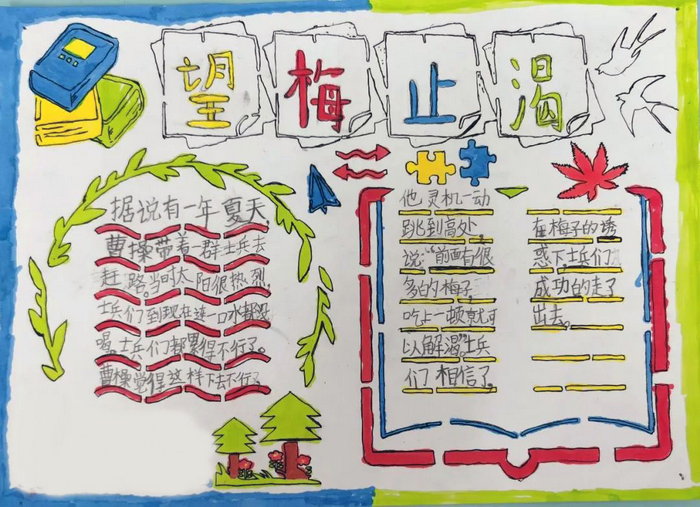 望梅止渴
据说有一年夏天
曹操带着一群士兵去
赶路。当时太阳很热烈,
士兵们到现在连一口水都没
喝,士兵们都累得不行了。
曹操觉得这样下去不行了
他灵机一动
跳到高处,
说:“前面有很
多的梅子,
吃上一顿就可
以解渴。”士兵
们相信了。
在梅子的诱
惑下,士兵们
成功的走了
出去。